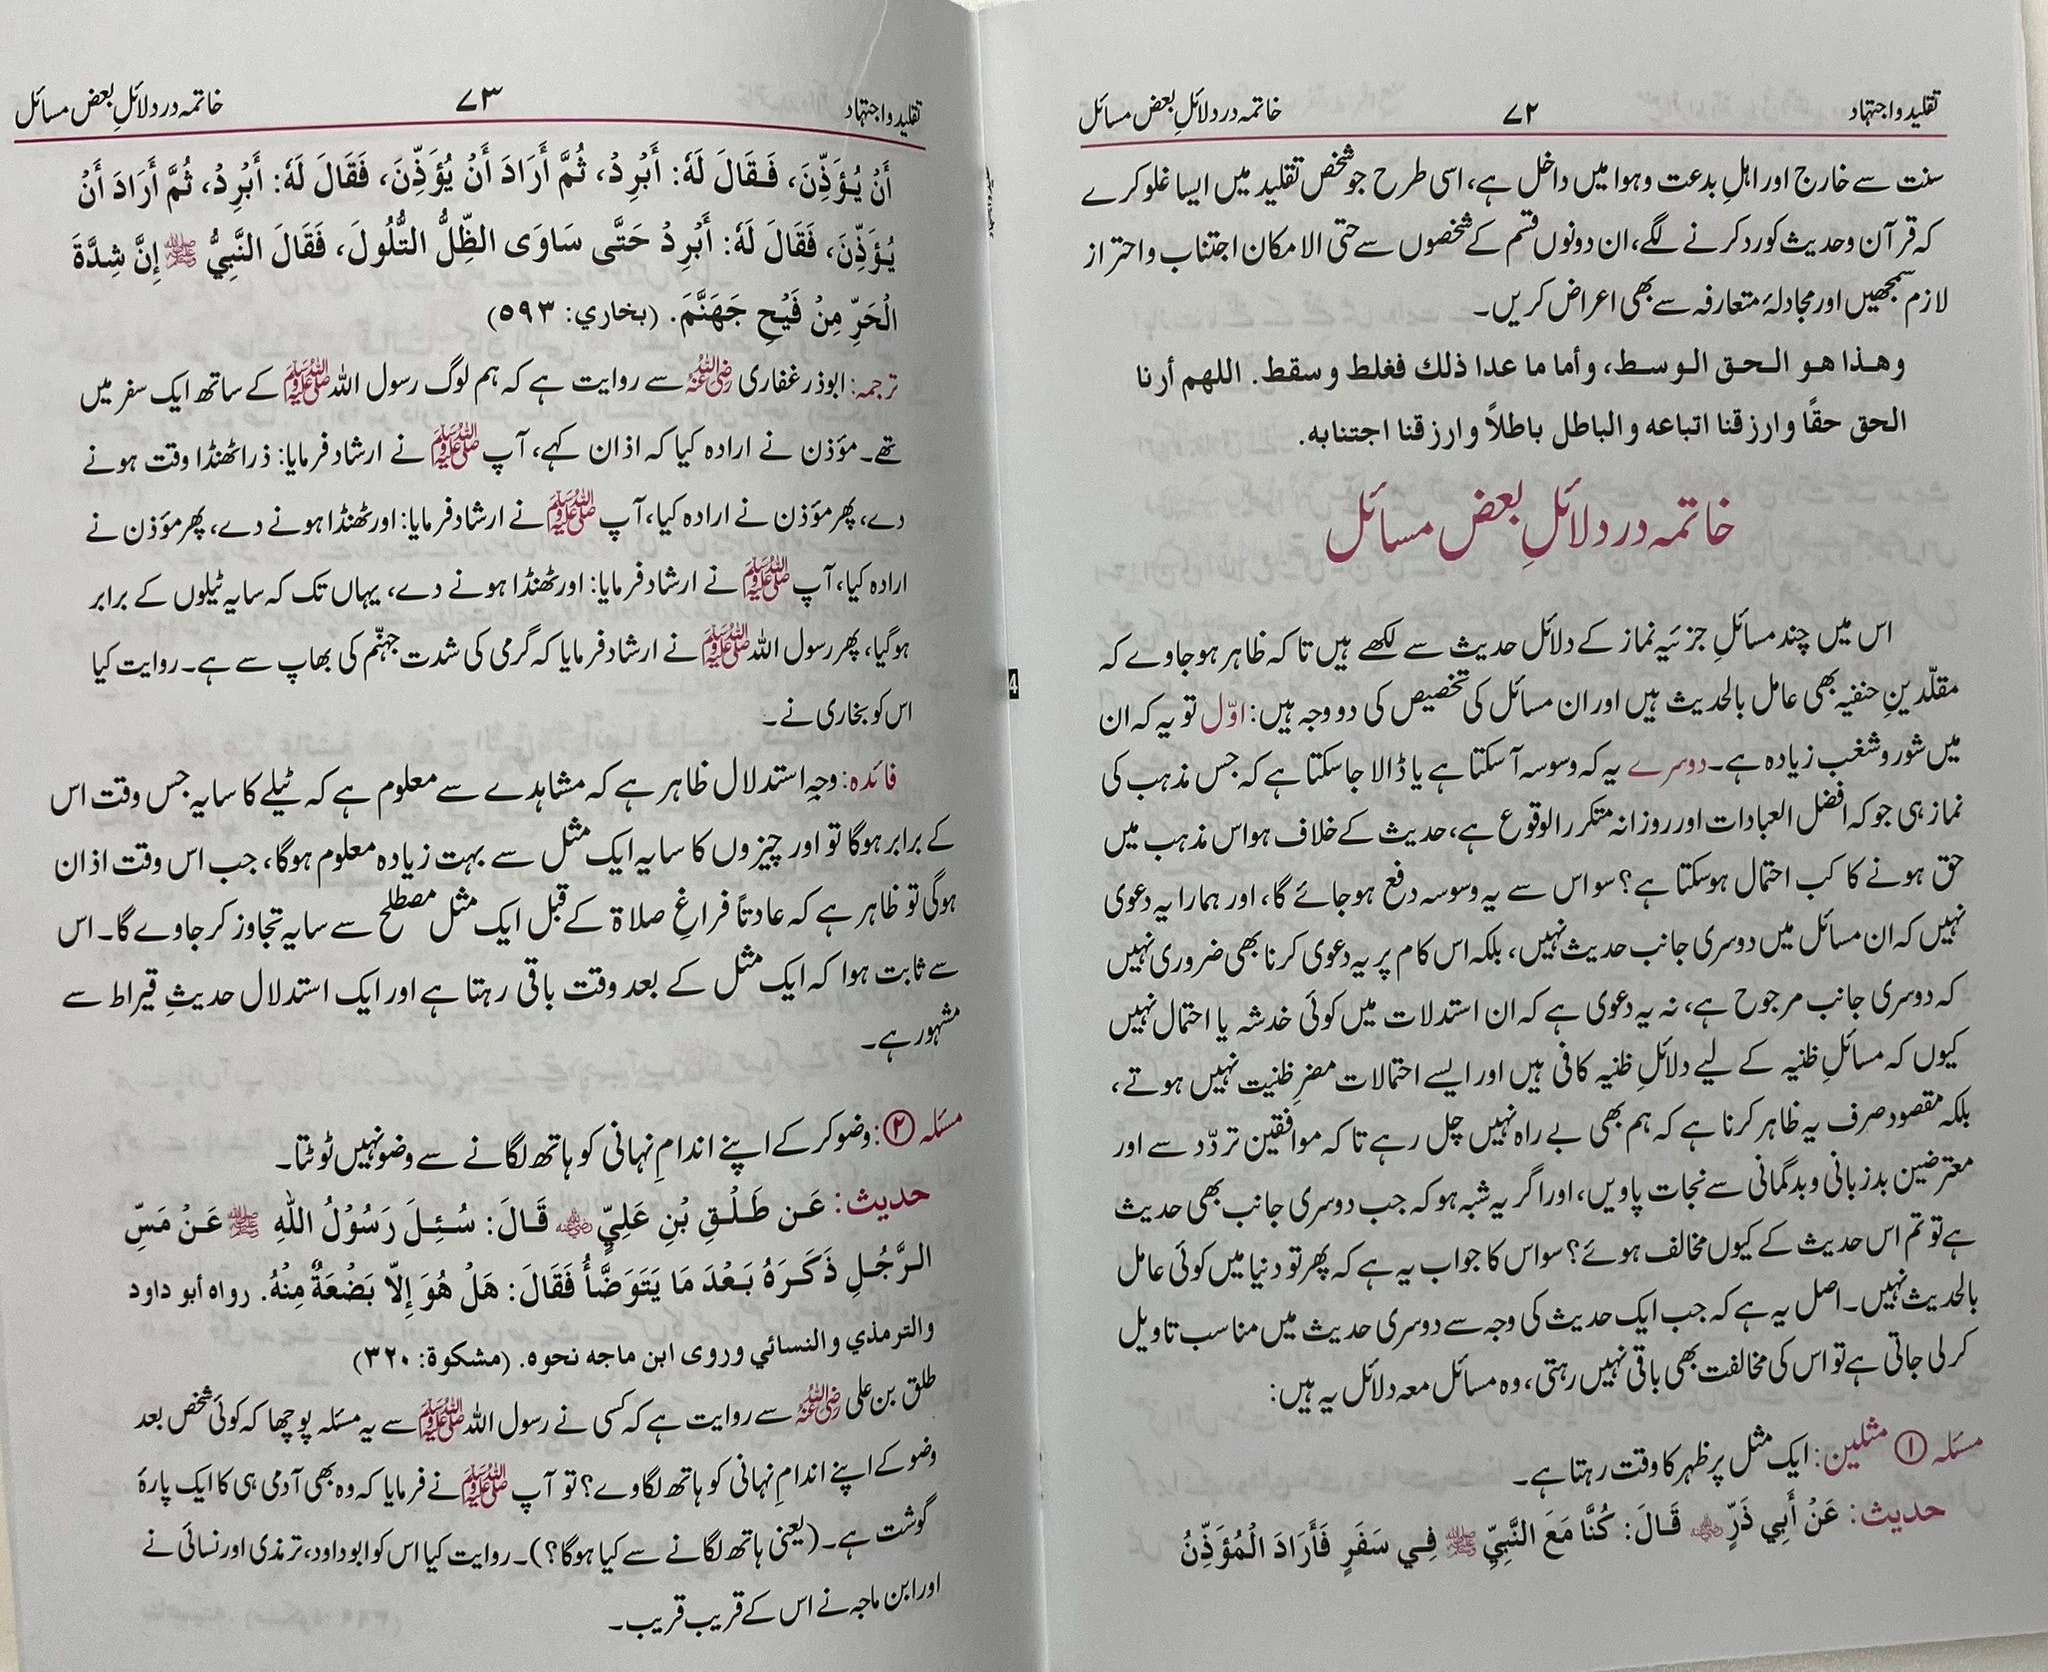 تقلید واجتہاد ۷۲ خاتمہ در دلائلِ بعض مسائل
سنت سے خارج اور اہلِ بدعت وہوا میں داخل ہے، اسی طرح جو شخص تقلید میں ایسا غلو کرے
کہ قرآن وحدیث کو رد کرنے لگے، ان دونوں قسم کے شخصوں سے حتی الامکان اجتناب واحتراز
لازم سمجھیں اور مجادلۂ متعارفہ سے بھی اعراض کریں۔
وهذا هو الحق الوسط، وأما ما عدا ذلك فغلط وسقط. اللهم أرنا
الحق حقًا وارزقنا اتباعه والباطل باطلاً وارزقنا اجتنابه.
خاتمہ در دلائلِ بعض مسائل
اس میں چند مسائلِ جزئیہ نماز کے دلائل حدیث سے لکھے ہیں تاکہ ظاہر ہوجاوے کہ
مقلّدینِ حنفیہ بھی عامل بالحدیث ہیں اور ان مسائل کی تخصیص کی دو وجہ ہیں: اوّل تو یہ کہ ان
میں شور وشغب زیادہ ہے۔ دوسرے یہ کہ وسوسہ آسکتا ہے یا ڈالا جاسکتا ہے کہ جس مذہب کی
نماز ہی جو کہ افضل العبادات اور روزانہ متکرر الوقوع ہے، حدیث کے خلاف ہو اس مذہب میں
حق ہونے کا کب احتمال ہوسکتا ہے؟ سو اس سے یہ وسوسہ دفع ہوجائے گا، اور ہمارا یہ دعوی
نہیں کہ ان مسائل میں دوسری جانب حدیث نہیں، بلکہ اس کام پر یہ دعوی کرنا بھی ضروری نہیں
کہ دوسری جانب مرجوح ہے، نہ یہ دعوی ہے کہ ان استدلات میں کوئی خدشہ یا احتمال نہیں
کیوں کہ مسائلِ ظنیہ کے لیے دلائلِ ظنیہ کافی ہیں اور ایسے احتمالات مضرِ ظنیت نہیں ہوتے،
بلکہ مقصود صرف یہ ظاہر کرنا ہے کہ ہم بھی بے راہ نہیں چل رہے تاکہ موافقین تردّد سے اور
معترضین بدزبانی وبدگمانی سے نجات پاویں، اور اگر یہ شبہ ہو کہ جب دوسری جانب بھی حدیث
ہے تو تم اس حدیث کے کیوں مخالف ہوئے؟ سو اس کا جواب یہ ہے کہ پھر تو دنیا میں کوئی عامل
بالحدیث نہیں۔ اصل یہ ہے کہ جب ایک حدیث کی وجہ سے دوسری حدیث میں مناسب تاویل
کرلی جاتی ہے تو اس کی مخالفت بھی باقی نہیں رہتی، وہ مسائل معہ دلائل یہ ہیں:
مسئلہ ① مثلین: ایک مثل پر ظہر کا وقت رہتا ہے۔
حدیث: عَنْ أَبِي ذَرٍّ ؓ قَالَ: كُنَّا مَعَ النَّبِيِّ ﷺ فِي سَفَرٍ فَأَرَادَ الْمُؤَذِّنُ
تقلید واجتہاد ۷۳ خاتمہ در دلائلِ بعض مسائل
أَنْ يُؤَذِّنَ، فَقَالَ لَهٗ: أَبْرِدْ، ثُمَّ أَرَادَ أَنْ يُؤَذِّنَ، فَقَالَ لَهٗ: أَبْرِدْ، ثُمَّ أَرَادَ أَنْ
يُؤَذِّنَ، فَقَالَ لَهٗ: أَبْرِدْ حَتَّى سَاوَى الظِّلُّ التُّلُولَ، فَقَالَ النَّبِيُّ ﷺ إِنَّ شِدَّةَ
الْحَرِّ مِنْ فَيْحِ جَهَنَّمَ. (بخاري: ٥٩٣)
ترجمہ: ابوذر غفاری ؓ سے روایت ہے کہ ہم لوگ رسول اللہ ﷺ کے ساتھ ایک سفر میں
تھے۔ مؤذن نے ارادہ کیا کہ اذان کہے، آپ ﷺ نے ارشاد فرمایا: ذرا ٹھنڈا وقت ہونے
دے، پھر مؤذن نے ارادہ کیا، آپ ﷺ نے ارشاد فرمایا: اور ٹھنڈا ہونے دے، پھر مؤذن نے
ارادہ کیا، آپ ﷺ نے ارشاد فرمایا: اور ٹھنڈا ہونے دے، یہاں تک کہ سایہ ٹیلوں کے برابر
ہوگیا، پھر رسول اللہ ﷺ نے ارشاد فرمایا کہ گرمی کی شدت جہنّم کی بھاپ سے ہے۔ روایت کیا
اس کو بخاری نے۔
فائدہ: وجہِ استدلال ظاہر ہے کہ مشاہدے سے معلوم ہے کہ ٹیلے کا سایہ جس وقت اس
کے برابر ہوگا تو اور چیزوں کا سایہ ایک مثل سے بہت زیادہ معلوم ہوگا، جب اس وقت اذان
ہوگی تو ظاہر ہے کہ عادتاً فراغِ صلاۃ کے قبل ایک مثل مصطلح سے سایہ تجاوز کر جاوے گا۔ اس
سے ثابت ہوا کہ ایک مثل کے بعد وقت باقی رہتا ہے اور ایک استدلال حدیثِ قیراط سے
مشہور ہے۔
مسئلہ ②: وضو کرکے اپنے اندامِ نہانی کو ہاتھ لگانے سے وضو نہیں ٹوٹتا۔
حدیث: عَن طَلْقِ بْنِ عَلِيٍّ ؓ قَالَ: سُئِلَ رَسُوْلُ اللّٰهِ ﷺ عَنْ مَسِّ
الرَّجُلِ ذَكَرَهٗ بَعْدَ مَا يَتَوَضَّأُ فَقَالَ: هَلْ هُوَ إِلَّا بَضْعَةٌ مِنْهُ. رواه أبو داود
والترمذي والنسائي وروى ابن ماجه نحوه. (مشكوة: ٣٢٠)
طلق بن علی ؓ سے روایت ہے کہ کسی نے رسول اللہ ﷺ سے یہ مسئلہ پوچھا کہ کوئی شخص بعد
وضو کے اپنے اندامِ نہانی کو ہاتھ لگاوے؟ تو آپ ﷺ نے فرمایا کہ وہ بھی آدمی ہی کا ایک پارۂ
گوشت ہے۔ (یعنی ہاتھ لگانے سے کیا ہوگا؟)۔ روایت کیا اس کو ابوداود، ترمذی اور نسائی نے
اور ابن ماجہ نے اس کے قریب قریب۔